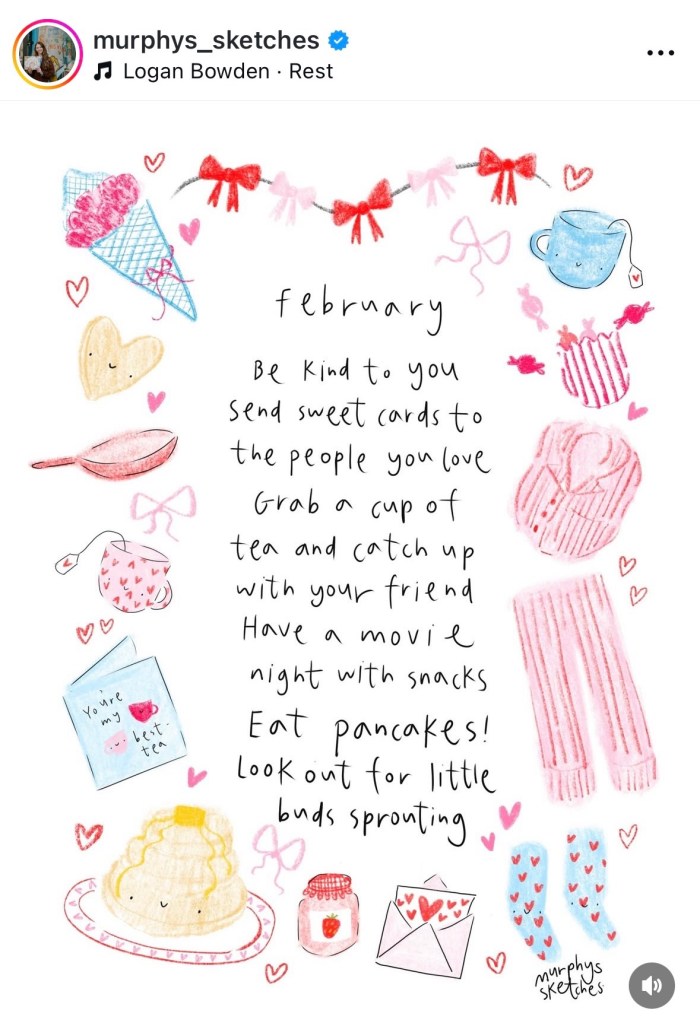 murphys_sketches
Logan Bowden · Rest
february
Be Kind to you
Send sweet cards to
the people you love
Grab a cup of
tea and catch up
with your friend
Have a movie
night with snacks
Eat pancakes!
Look out for little
buds sprouting
You're
my
best-
tea
murphys
sketches